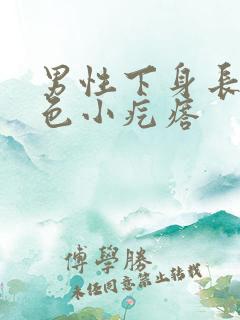 男性下身長
色小疙瘩
傅學勝
未经同意禁止转载